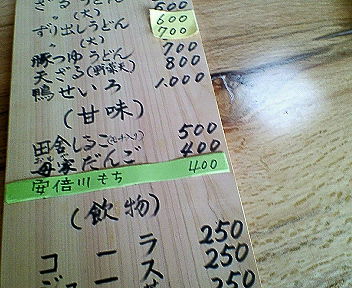 ざるうどん 600
〃 (大) 600
ずり出しうどん 700
〃 (大)
豚つゆうどん 700
天ざる(野菜天) 800
鴨せいろ 1,000
(甘味)
田舎しるこ 500
だんご 400
安倍川もち 400
(飲物)
コーラ 250
ジュース 250
250